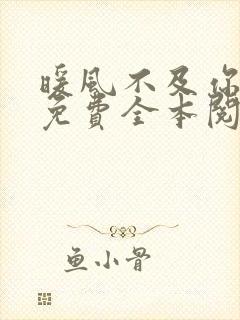 暖风不及你
免费全本阅
鱼小骨